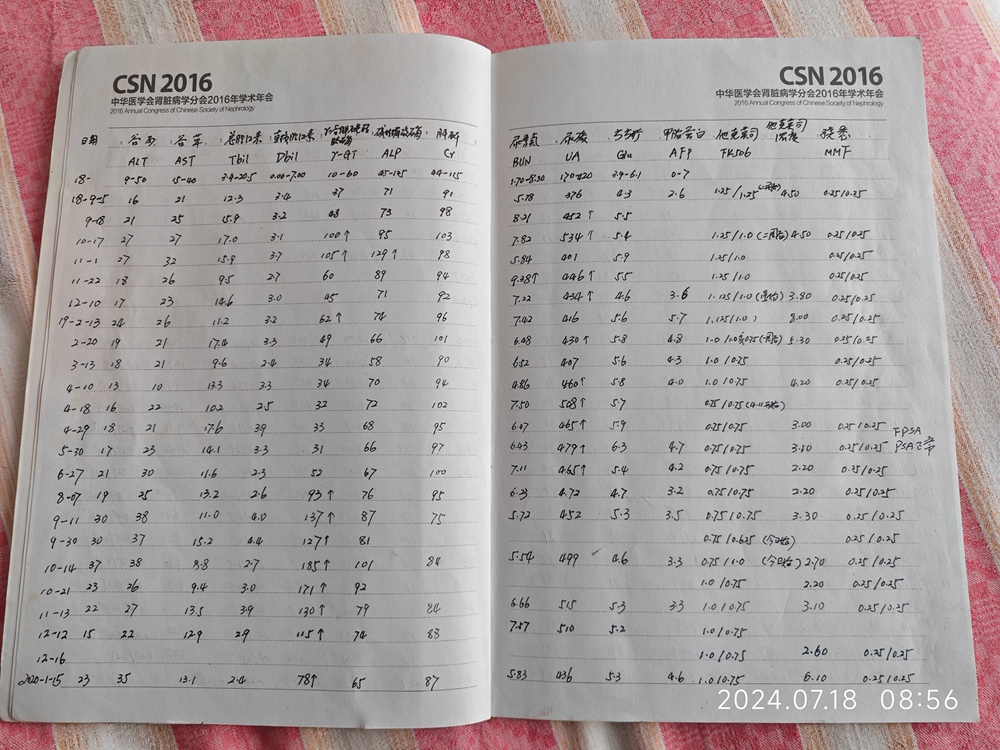 CSN 2016
中华医学会肾脏病学分会2016年学术年会
2016 Annual Congress of Chinese Society of Nephrology
日期 谷丙 谷草 总胆红素 直接胆红素 碱性磷酸酶 肌酐
ALT AST Tbil Dbil γ-GT ALP Cr
18- 9-50 15-40 3.4-20.5 0.00-7.00 10-60 45-125 44-115
18-9-5 16 21 12.3 3.4 37 71 91
9-18 21 25 15.9 3.2 48 73 98
10-17 27 27 17.0 3.1 100↑ 95 103
11-1 27 32 15.9 3.7 105↑ 129↑ 98
11-22 18 26 9.5 2.7 60 89 94
12-10 17 23 14.6 3.0 45 71 92
19-2-13 24 26 11.2 3.2 62↑ 74 96
2-20 19 21 17.4 3.3 49 66 101
3-13 18 21 9.6 2.4 34 58 90
4-10 13 10 13.3 3.3 34 70 94
4-18 16 22 10.2 2.5 32 72 102
4-29 18 21 17.6 3.9 33 68 95
5-30 17 23 14.1 3.3 31 66 97
6-27 21 30 11.6 2.3 52 67 100
8-07 19 25 13.2 2.6 93↑ 76 95
9-11 30 38 11.0 4.0 137↑ 87 75
9-30 30 37 15.2 4.4 127↑ 81
10-14 37 38 8.8 2.7 185↑ 101 84
10-21 23 26 9.4 3.0 171↑ 92
11-13 22 27 13.5 3.9 130↑ 79 84
12-12 15 22 12.9 2.9 115↑ 74 88
12-16
2020-1-15 23 35 13.1 2.4 78↑ 65 87
CSN 2016
中华医学会肾脏病学分会2016年学术年会
2016 Annual Congress of Chinese Society of Nephrology
尿素氮 尿酸 甲胎蛋白 他克莫司 他克莫司浓度 骁悉
BUN UA Glu AFP FK506 MMF
1.70-8.30 170-420 3.9-6.1 0-7
5.78 376 4.3 2.6 1.25/1.25 4.50 0.25/0.25
8.21 452↑ 5.5
7.82 534↑ 5.4 1.25/1.0 4.50 0.25/0.25
5.84 401 5.9 1.25/1.0 0.25/0.25
9.38↑ 446↑ 5.5 1.25/1.0 0.25/0.25
7.22 434↑ 4.6 3.6 1.125/1.0 3.80 0.25/0.25
7.42 416 5.6 5.7 1.125/1.0 8.00 0.25/0.25
6.08 430↑ 5.8 4.8 1.0 5.30 0.25/0.25
6.52 407 5.6 4.3 1.0/0.75 0.25/0.25
4.86 460↑ 5.8 4.0 1.0/0.75 4.20 0.25/0.25
7.50 508↑ 5.7 0.75/0.75
6.07 465↑ 5.9 0.75/0.75 3.00 0.25/0.25 FPSA
6.43 479↑ 6.3 4.7 0.75/0.75 3.10 0.25/0.25 PSA正常
7.11 465↑ 5.4 4.2 0.75/0.75 2.20 0.25/0.25
6.23 4.72 4.7 3.2 0.75/0.75 2.20 0.25/0.25
5.72 452 5.3 3.5 0.75/0.75 3.30 0.25/0.25
0.75/0.625 (今日始) 0.25/0.25
5.54 499 4.6 3.3 0.75/1.0 (今日始) 2.70 0.25/0.25
1.0/0.75 2.20 0.25/0.25
6.66 515 5.3 3.3 1.0/0.75 3.10 0.25/0.25
7.87 510 5.2 1.0/0.75
1.0/0.75 2.60 0.25/0.25
5.83 436 5.3 4.6 1.0/0.75 6.10 0.25/0.25
2024.07.18 08:56